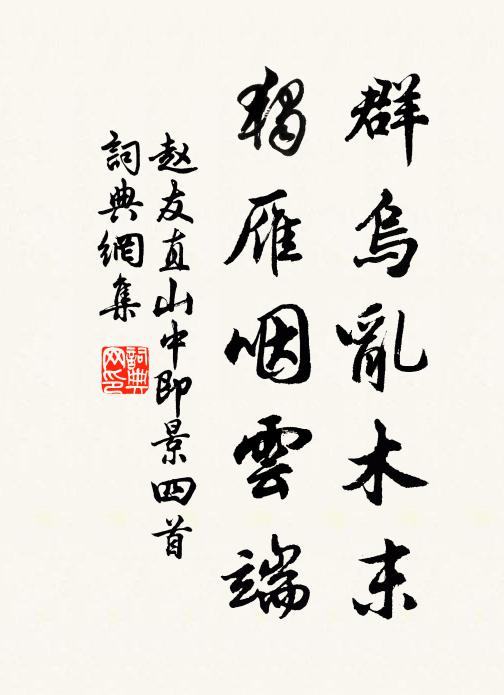 群烏亂木末
獨雁咽雲端
赵友直山中即景四首
詞典網集
詞典网印